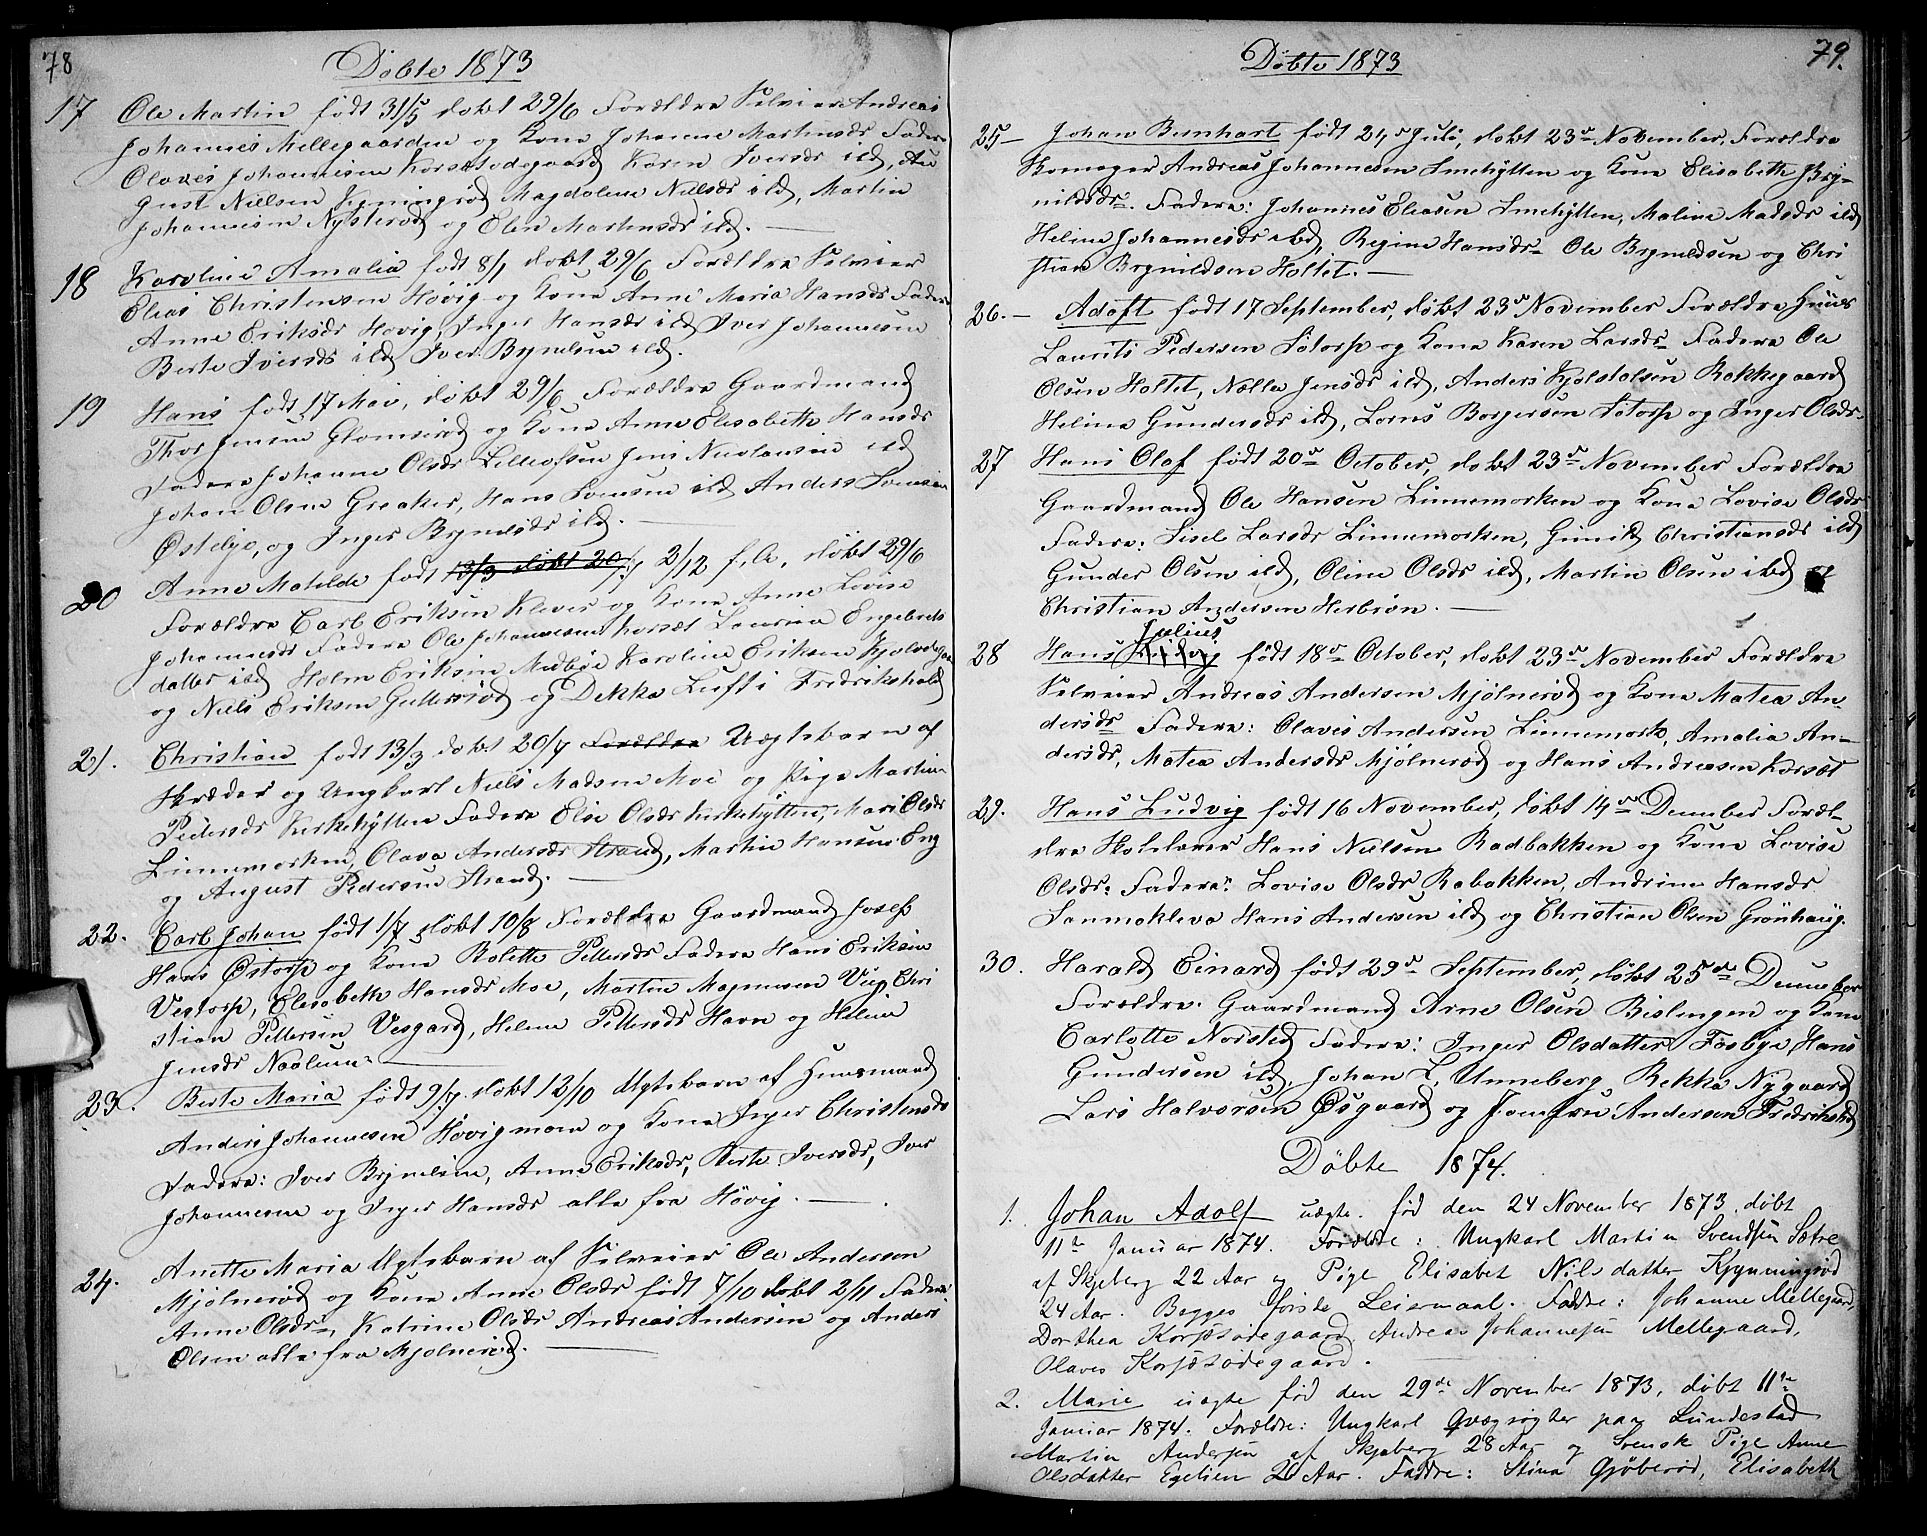 78
Döbte 1873
17 Ole Martin född 31/5 döbt 29/6 Forældre Selveier Andreas
Johannes Mellegaarden og Kone Johanne Martinsdr Faddere
Olaves Johannesen Korsetödegaard Karen Iversdr ibd, Au
gust Nielsen Kynningröd Magdalene Nielsdr ibd, Martin
Johannesen Nysteröd og Elen Martensdr ibd.
18 Karoline Amalia födt 8/1 döbt 29/6 Forældre Selveier
Elias Christensen Hövig og Kone Anne Maria Hansdr Faddere
Anne Eriksdr Hövig, Inger Hansdr ibd Iver Johannesen
Berte Iversdr ibd Iver Bynelsen ibd.
19 Hans födt 17 Mai, döbt 29/6 Forældre Gaardmand
Thor Jensen Glomsröd og Kone Anne Elisabeth Hansdr
Faddere Johanne Olsdr Lilleofsen Jens Nicolausen ibd
Johan Olsen Greaker, Hans ibd Anders
Östelye, og Inger Brynildsdr ibd.
20 Anne Matilde födt 13/3 döbt 20/7 2/12 f. A., döbt 29/6
Forældre Carl Eriksen Klever og Kone Anne Lovise
Johannesdr Faddere Ole Johannesen Korsæt Laurine Engebrets
datter ibd Holm Eriksen Medböe Karoline Eriksen
og Niels Eriksen Gutteröd og Dekka Luft i Fredrikshald
21. Christian födt 13/3 döbt 20/7 Forældre Uægtebarn af
Skræder og Ungkarl Niels Madsen Moe og Pige Martine
Pedersdr Kirkehytten Faddere Elie Olsdr Kirkehytten, Mari Olsdr
Linnemorken, Olava Andersdr Strand, Martin Hansen Eng
og August Pedersen Strand.
22. Carl Johan födt 1/7 döbt 10/8 Forældre Gaardmand Josef
Hans Östorp og Kone Bolette Pettersdr Faddere Hans Eriksen
Vestorp, Elisabeth Hansdr Moe, Martin Magnusen Viig Chri
stian Pettersen Vesgard, Helene Pettersdr Havn og Helene
Jensdr
23. Berte Maria födt 9/7 döbt 12/10 Ægtebarn af Huusmand
Anders Johannesen Hövigmoen og Kone Inger Christensdr
Faddere: Iver Brynelsen, Anne Eriksdr, Berte Iversdr, Iver
Johannesen og Inger Hansdr alle fra Hövig.
24. Anette Maria Ægtebarn af Selveier Ole Andersen
Mjölneröd og Kone Anne Olsdr födt 7/10 döbt 2/11 Faddere
Anne Olsdr, Katrine Olsdr Andreas Andersen og Anders
Olsen alle fra Mjölneröd.
79.
Döbte 1873
25 – Johan Bernhart födt 24de Juli, döbt 23de November. Forældre
Skomager Andreas Johannesen Smehytten og Kone Elisabeth Bry-
nildsdr. Faddere: Johannes Eliasen Smehytten, Maline Madsdr ibd
Heline Johannesdr ibd, Regine Hansdr Ole Brynildsen og Chri
stian Brynildsen Holtet.
26. – Adoft födt 17 September, döbt 23de November Forældre Huus
Laurits Pedersen Sötorp og Kone Karen Larsdr Faddere Ole
Olsen Holtet, Nella Jensdr ibd, Anders Kjölstolsen Rokkegaard
Heline Gundersdr ibd, Lorns Borgersen Sötorp og Inger Olsdr
27 Hans Olaf födt 20de October, döbt 23de November Forældre
Gaardmand Ole Hansen Linnemorken og Kone Lovise Olsdr
Faddere: Sisel Larsdr Linnemorken, Gunild Christiansdr ibd
Gunder Olsen ibd, Oline Olsdr ibd, Martin Olsen ibd og
Christian Andersen Herbrön.
Julius
28 Hans Ludvig födt 18de October, döbt 23de November Forældre
Selveier Andreas Andersen Mjölneröd og Kone Matea An-
dersdr Faddere: Olaves Andersen Linnemork, Amalia An-
dersdr, Matea Andersdr Mjölneröd og Hans Andreasen Korsæt
29. Hans Ludvig födt 16 November, döbt 14de December Foræl-
dre Skolelærer Hans Nielsen Radbakken og Kone Lovise
Olsdr. Faddere: Lovise Olsdr Rabakken, Andrine Hansdr
Sanmokleva Hans Andersen ibd og Christian Olsen Grönhaug.
30. Harald Einard födt 29de September, döbt 25de December
Forældre: Gaardmand Arne Olsen Bislingen og Kone
Carlotte Norsted Faddere: Inger Olsdatter Fosbye, Hans
Gundersen ibd, Johan L. Unneberg Rekka Nygaard
Lars Halvorsen Øsgaard og Jomfru Andersen Fredrikstad
Döbte 1874.
1. Johan Adolf uægte. fød den 24 November 1873. döbt
11te Januar 1874. Forældre: Ungkarl Martin Svendsen Sætre
af Skjeberg 22 Aar og Pige Elisabet Nilsdatter Kjynningsröd
24 Aar. Begges förste Leiermaal. Faddre: Johanne Mellegaard,
Dorthea Korsetödegaard Andreas Johannesen Mellegaard,
Olaves Korsetödegaard.
2. Marie uægte fød den 29de November 1873, döbt 11te
Januar 1874. Forældre: Ungkarl Qvægrögter paa Lundestad
Martin Andersen af Skjeberg 28 Aar og Svensk Pige Anne
Olsdatter Egelien Aar. Faddre: Stina Gjöberöd, Elisabeth